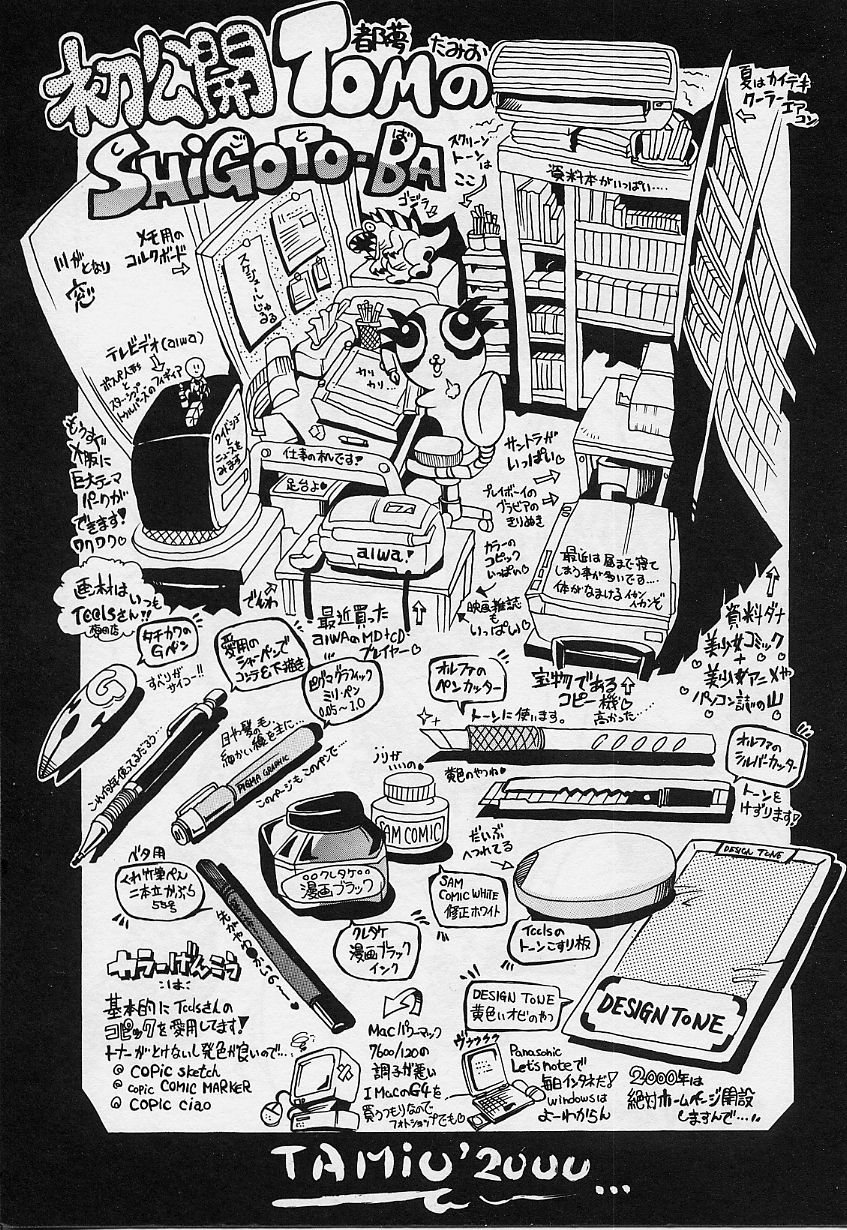 初公開 TOMの
都夢 たみお
SHiGOTO-BA
しごとば
夏はカイテキ
クーラーエア
コン
スクリーン
トーン
は
ココ
資料本がいっぱい….
ゴジラ
メモ用の
コルクボード
川がとなり
窓
スケジュール
テレビデオ(aiwa)
スターシップ
トゥルーパーズのフィギュア
カリ
カリ…
ワイドショー
と
ニュースを
みるよ
もうすぐ
大阪に
巨大テーマ
パークが
できます!
ワクワク♡
仕事の机です!
足台よ♡
サントラが
いっぱい♡
プレイボーイの
グラビアの
きりぬき
aiwa!
カラーの
コピック
いっぱい♡
最近は昼まで寝て
しまう事が多いです….
体がなまけるイカン
イカンぞ
画材はいつも
Toolsさん!!
梅田店
でんわ
最近買った
aiwaのMD+CD
プレイヤー♡
映画雑誌
も
いっぱい
宝物である
コピー機♡
高かった…
資料ダナ
美少女コミック
+
美少女アニメや
パソコン誌の山
タチカワの
Gペン
すべりが
サイコー!!
G
愛用の
シャーペンで
コンテ&下描き
これ何年使ってるだろう…
ピグマグラフィック
ミリペン
0.05~1.0
目や髪の毛、
細かい線をまに…
PIGMA GRAPHIC
このページもこのペンで…
オルファの
ペンカッター
トーンに使います。
黄色のやつね♡
オルファの
シルバーカッター
トーンを
けずります!
ノリが
いいの。
SAM COMIC
クレタケ
漫画ブラック
だいぶ
へつれてる
SAM
COMIC WHITE
修正ホワイト
クレタケ
漫画ブラック
インク
Toolsの
トーンこすり板
DESIGN TONE
DESIGN TONE
DESIGN TONE
黄色いオビのやつ
ベタ用
くれ竹筆ペん
二本立かぶら
55号
カラーげんこう
は
基本的にToolsさんの
コピックを愛用してます!
トナーがとけないし発色が良いので…
@ COPIC sketch
@ COPIC COMIC MARKER
@ COPIC ciao
Macパワーマック
7600/120の
調子が悪い
IMacのG4を
買うつもりなので
フォトショップでも♡
ヴゥゥゥゥ
Panasonic
Let's noteで
毎日インタネだ!
windowsは
よーわからん
2000年は
絶対ホームページ開設
しますんで……
TAMiO '2000...